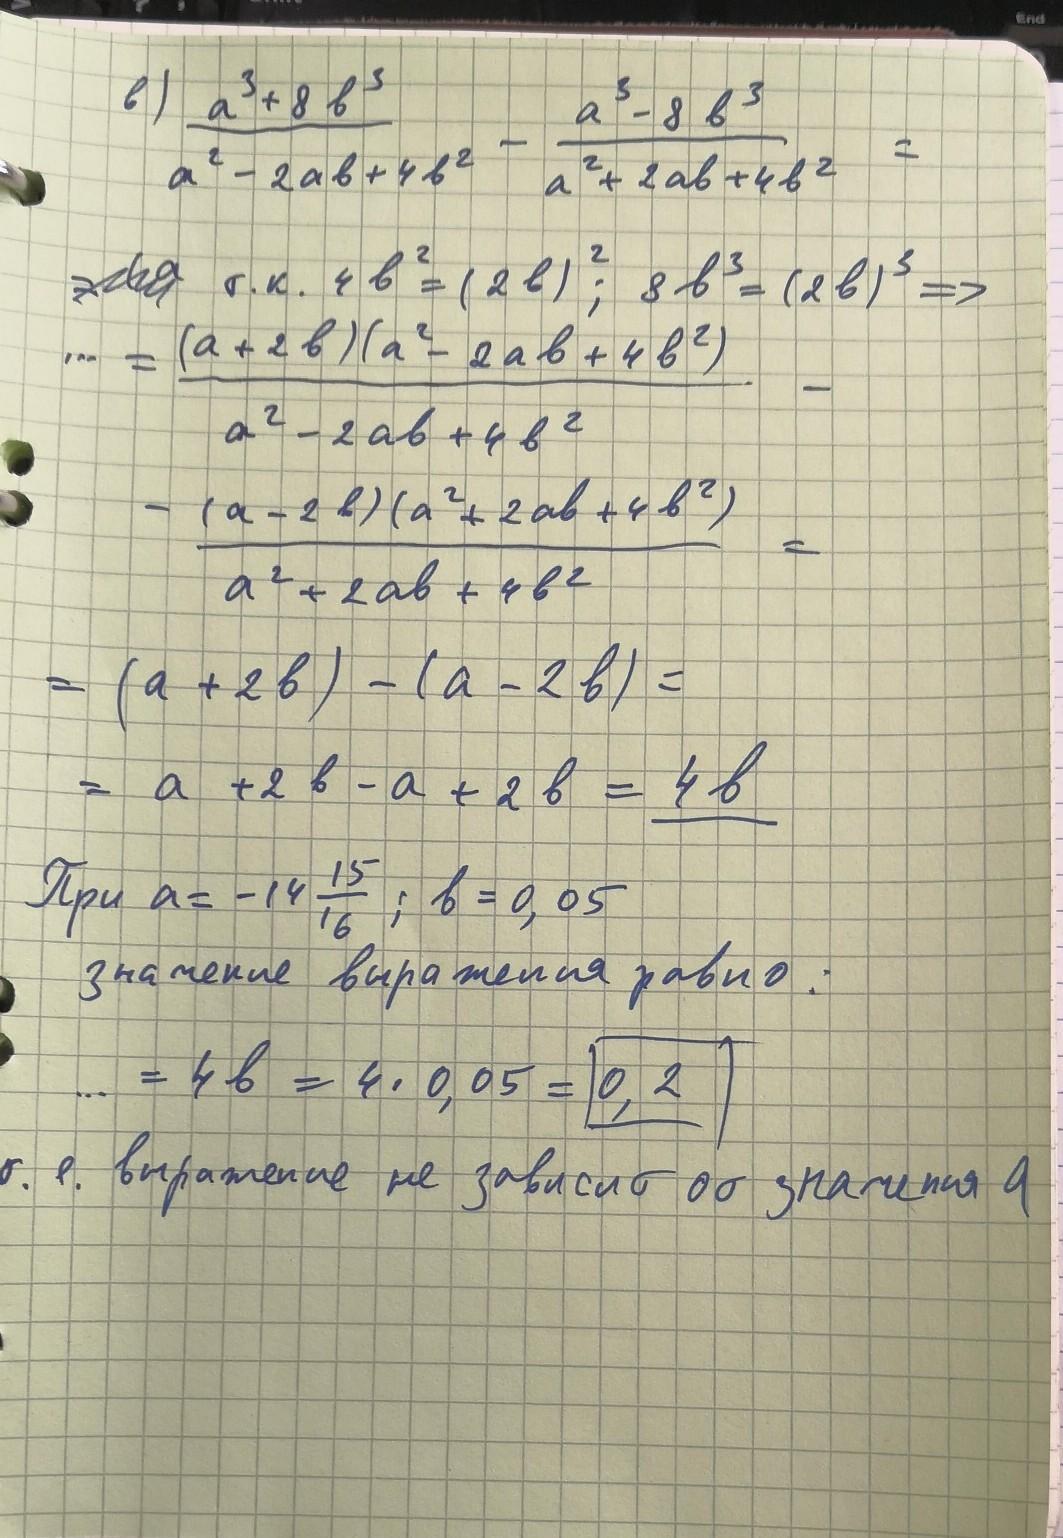 в) a³+8b³ / a²-2ab+4b² - a³-8b³ / a²+2ab+4b² =
т.к. 4b²=(2b)²; 8b³=(2b)³ =>
... = (a+2b)(a²-2ab+4b²) / a²-2ab+4b² -
- (a-2b)(a²+2ab+4b²) / a²+2ab+4b² =
= (a+2b) - (a-2b) =
= a +2b -a +2b = 4b
При a= -14 15/16 ; b=0,05
значение выражения равно:
... = 4b = 4·0,05 = 0,2
т.е. выражение не зависит от значения a
End